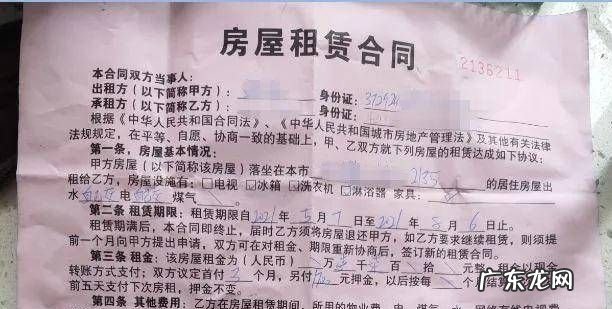 房屋租赁合同
2136211
本合同双方当事人：
出租方（以下简称甲方）： 身份证：372924
承租方（以下简称乙方）： 身份证：
根据《中华人民共和国合同法》、《中华人民共和国城市房地产管理法》及其他有关法律
法规规定，在平等、自愿、协商一致的基础上，甲、乙双方就下列房屋的租赁达成如下协议：
第一条，房屋基本情况：
甲方房屋（以下简称该房屋）落坐在本市 2135 的居住房屋出
租给乙方，房屋设施有：□电视 □冰箱 □洗衣机 □淋浴器 家具：
水 电 煤气
第二条 租赁期限：租赁期限自2021年5月7日至2021年8月6日止。
租赁期满后，本合同即终止，届时乙方须将房屋退还甲方，如乙方要求继续租赁，则须提
前一个月向甲方提出申请，双方可在对租金、期限重新协商后，签订新的租赁合同。
第三条 租金：该房屋租金为（人民币） 万 仟 佰 拾 元整，租金以现金
转账方式支付；双方议定首付3个月，另付 元押金，以后按每 个月结算
前五天支付下次房租，押金不变。
第四条 其他费用：乙方在房屋租赁期间，所用的物业费、电、煤气、水、网络有线电视费
广东龙网